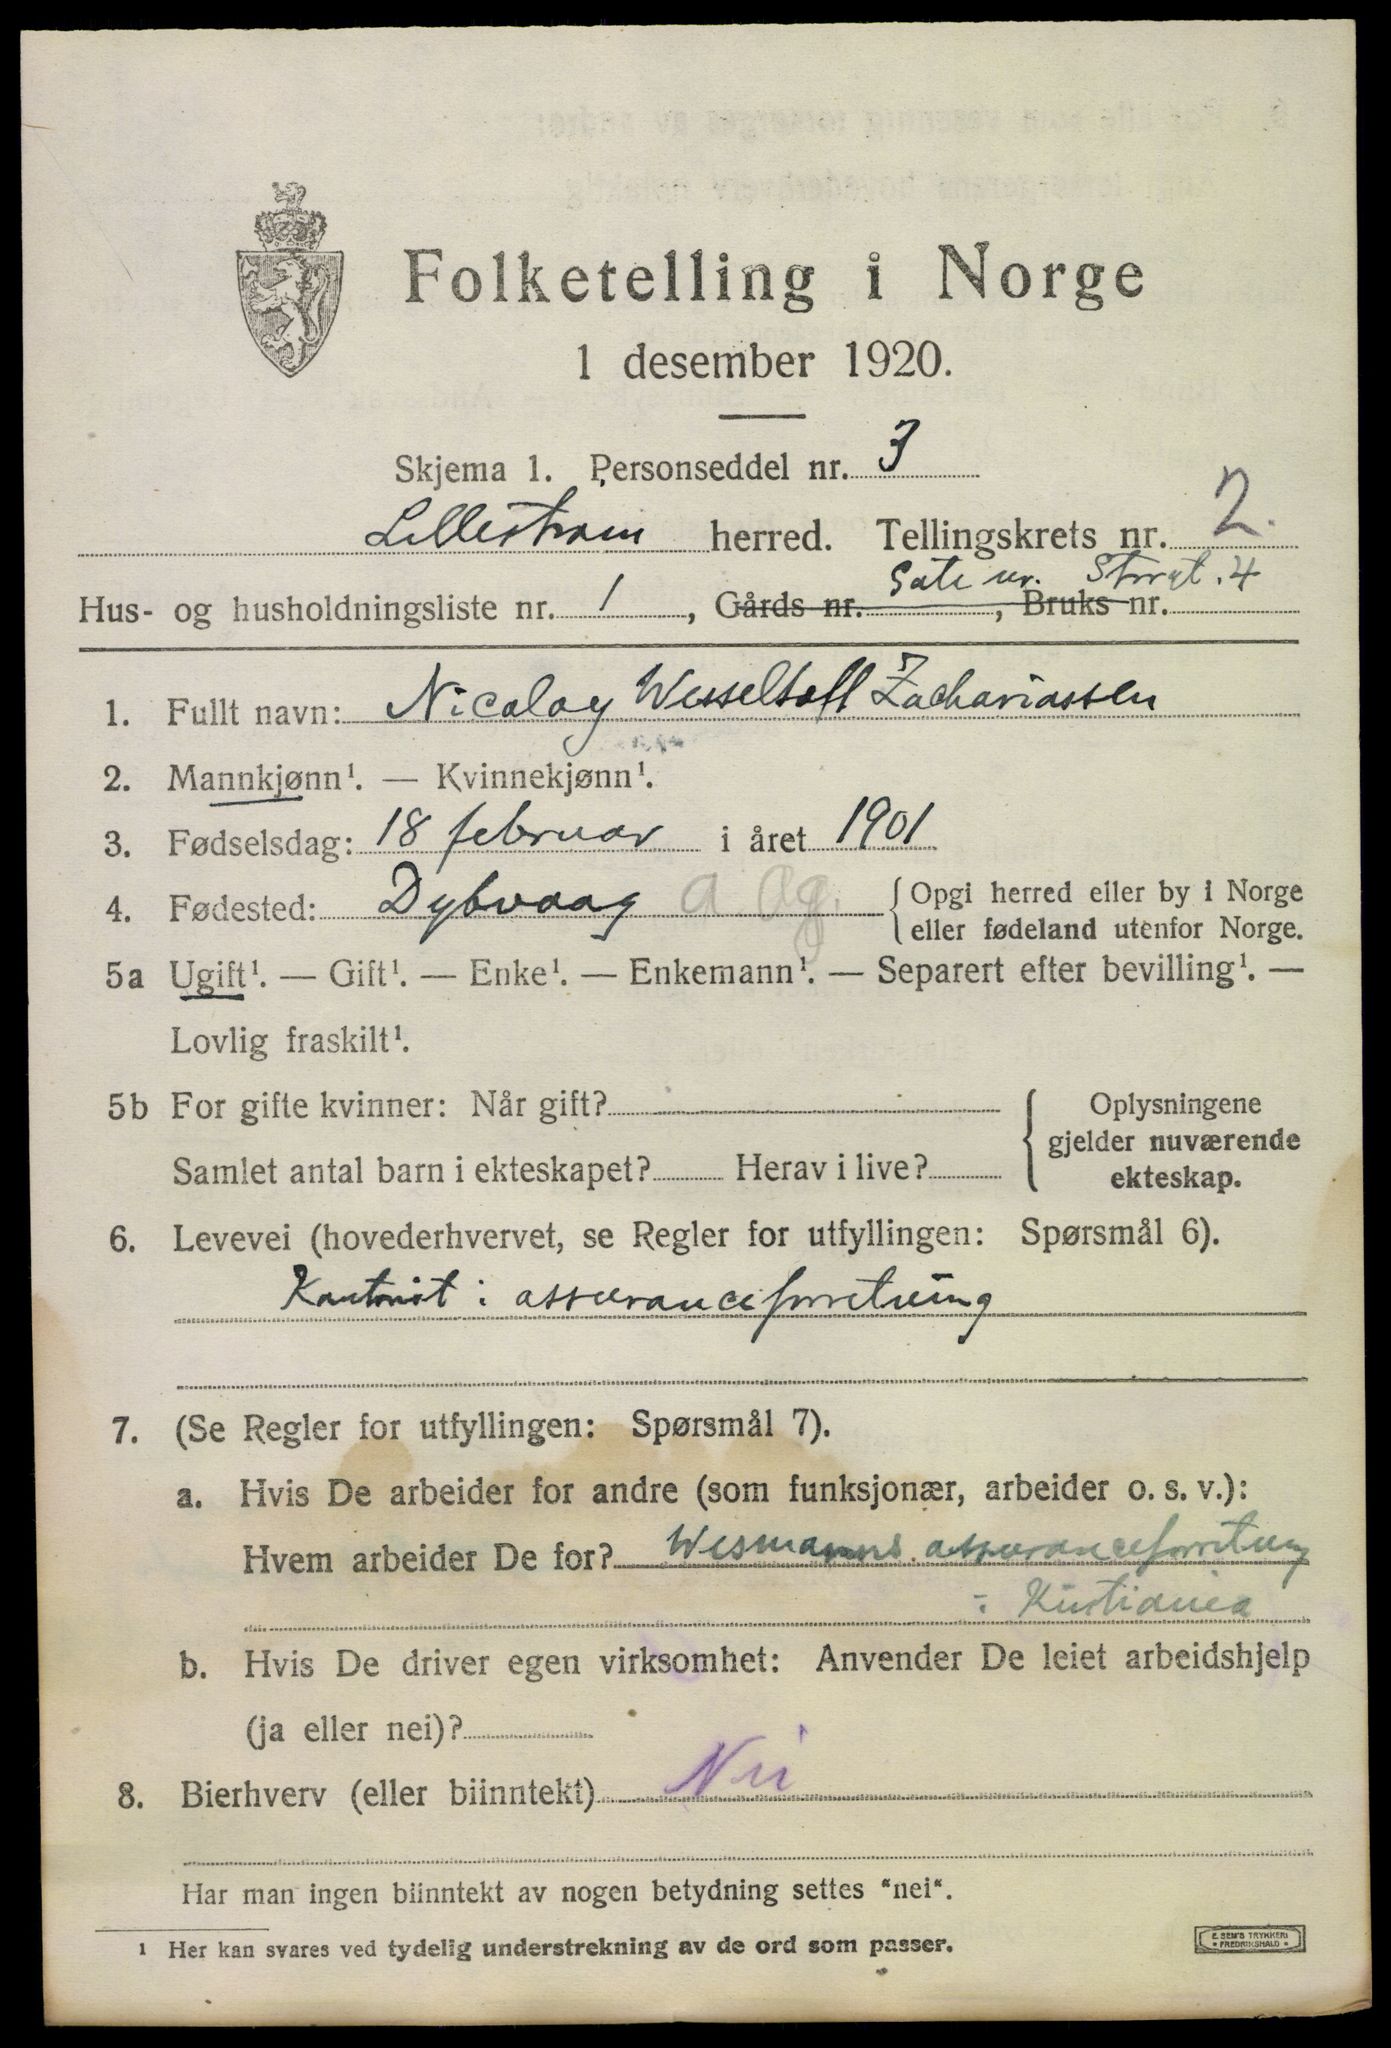 Folketelling i Norge
1 desember 1920.
Skjema 1. Personseddel nr. 3
Lillestrøm herred. Tellingskrets nr. 2.
Gate nr. Storgt. 4
Hus- og husholdningsliste nr. 1, Gårds nr. , Bruks nr.
1. Fullt navn: Nicolay Wesseltoft Zachariassen
2. Mannkjønn¹. — Kvinnekjønn¹.
3. Fødselsdag: 18 februar i året 1901
4. Fødested: Dybvaag a ag. { Opgi herred eller by i Norge
eller fødeland utenfor Norge.
5a Ugift¹. — Gift¹. — Enke¹. — Enkemann¹. — Separert efter bevilling¹. —
Lovlig fraskilt¹.
5b For gifte kvinner: Når gift? { Oplysningene
gjelder nuværende
Samlet antal barn i ekteskapet? Herav i live? ekteskap.
6. Levevei (hovederhvervet, se Regler for utfyllingen: Spørsmål 6).
Kontorist i assuranceforretning
7. (Se Regler for utfyllingen: Spørsmål 7).
a. Hvis De arbeider for andre (som funksjonær, arbeider o. s. v.):
Hvem arbeider De for? Wismanns assuranceforretning
i Kristiania
b. Hvis De driver egen virksomhet: Anvender De leiet arbeidshjelp
(ja eller nei)?
8. Bierhverv (eller biinntekt) Nei
Har man ingen biinntekt av nogen betydning settes "nei".
¹ Her kan svares ved tydelig understrekning av de ord som passer.
E. SEM'S TRYKKERI
• FREDRIKSHALD •